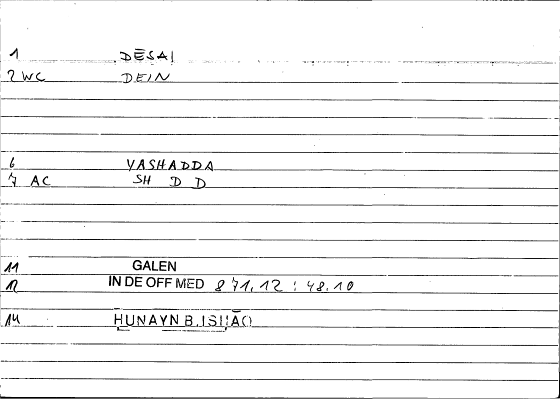 1 DESAI
2 WC DEIN
6 YASHADDA
7 AC SH D D
11 GALEN
12 IN DE OFF MED 871.12 : 48.10
14 HUNAYN B. ISḤĀQ